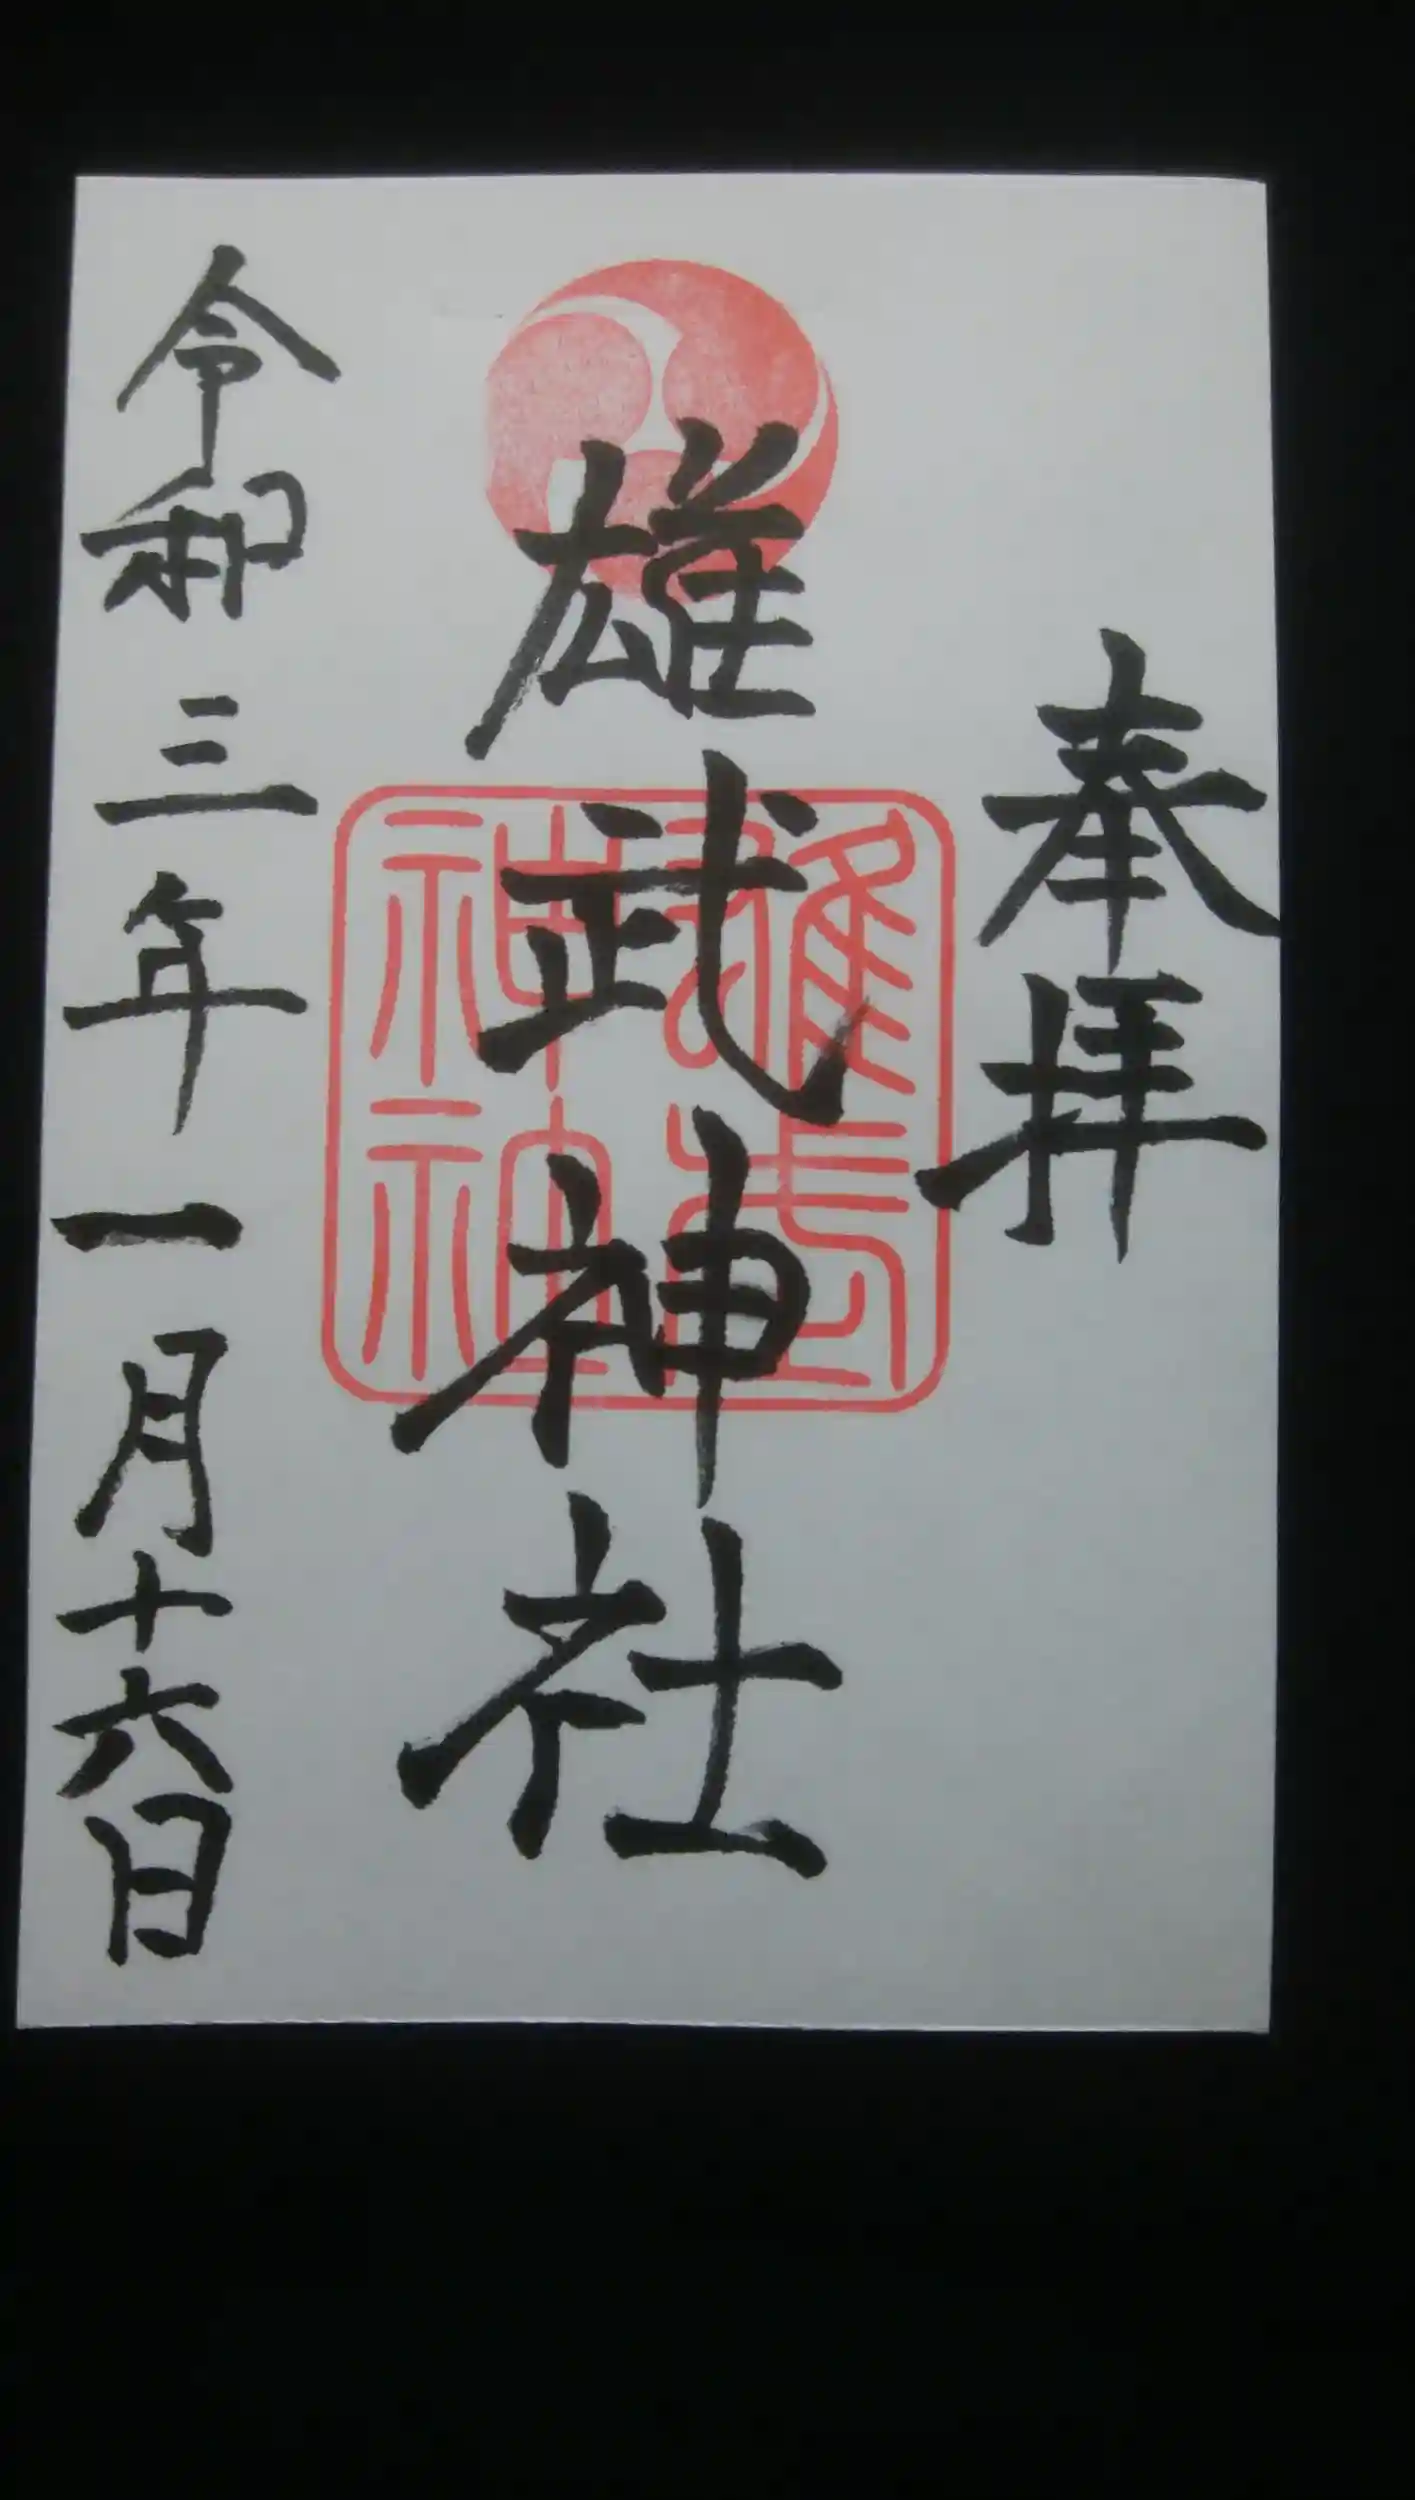 奉拝
雄武神社
雄武神社
令和三年一月十六日